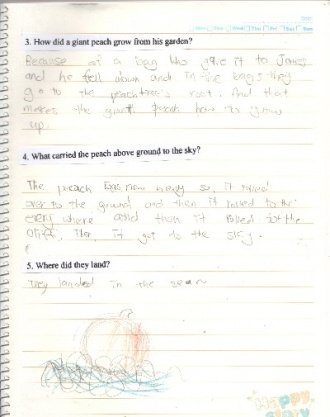 3. How did a giant peach grow from his garden?
Because of a man who gave it to James
and he fell down and in the bags they
go to the peach tree's root. And that
makes the giant peach how to grow
up.
4. What carried the peach above ground to the sky?
The peach was now heavy so, it rolled
over to the ground and then it rolled to the
every where and then it rolled to the
it got to the sky.
5. Where did they land?
They landed in the
Happy